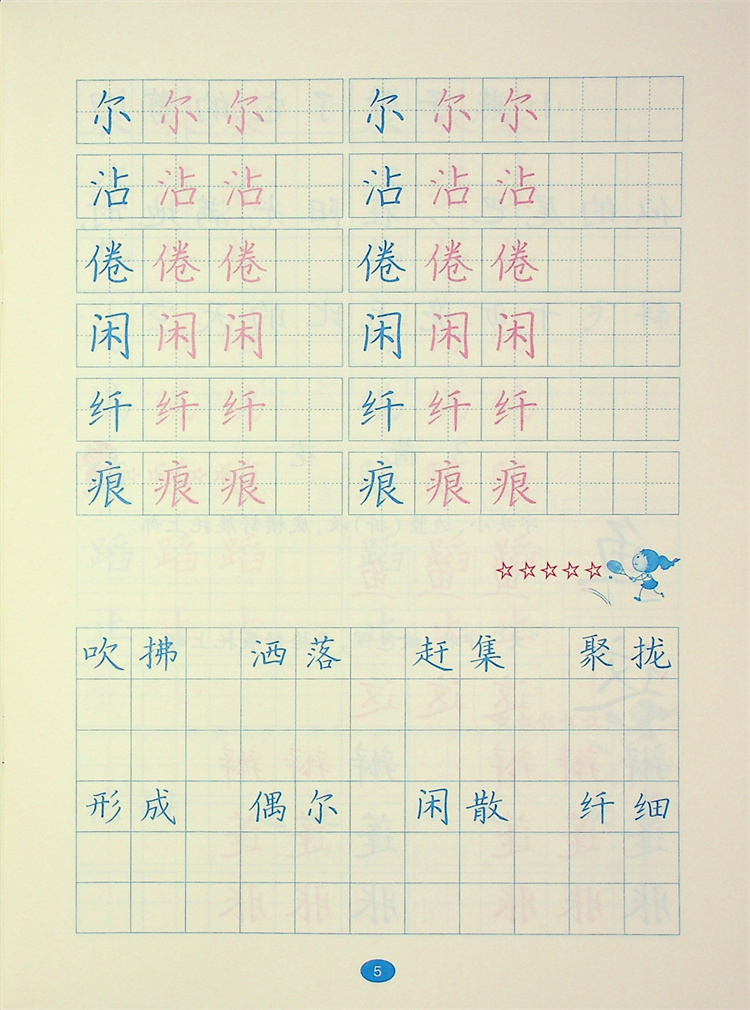 尔尔尔 尔尔尔
沾沾沾 沾沾沾
倦倦倦 倦倦倦
闲闲闲 闲闲闲
纤纤纤 纤纤纤
痕痕痕 痕痕痕
☆☆☆☆☆
吹拂 洒落 赶集 聚拢
形成 偶尔 闲散 纤细
5